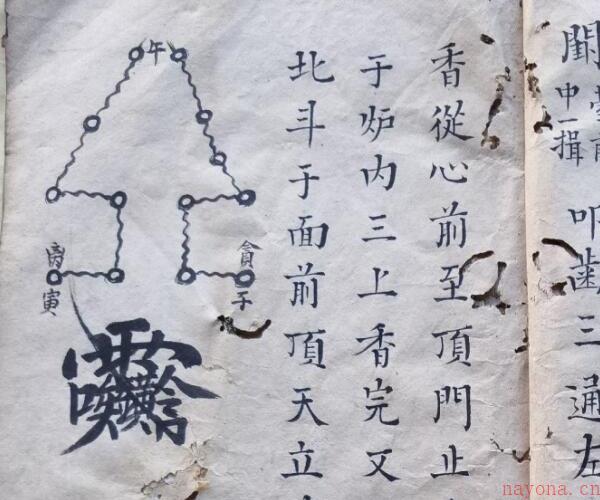 中一揖
叩齒三通左
香從心前至頂門止
于炉内三上香完又
北斗于面前頂天立
午
貪
子
寅
nayona.cn